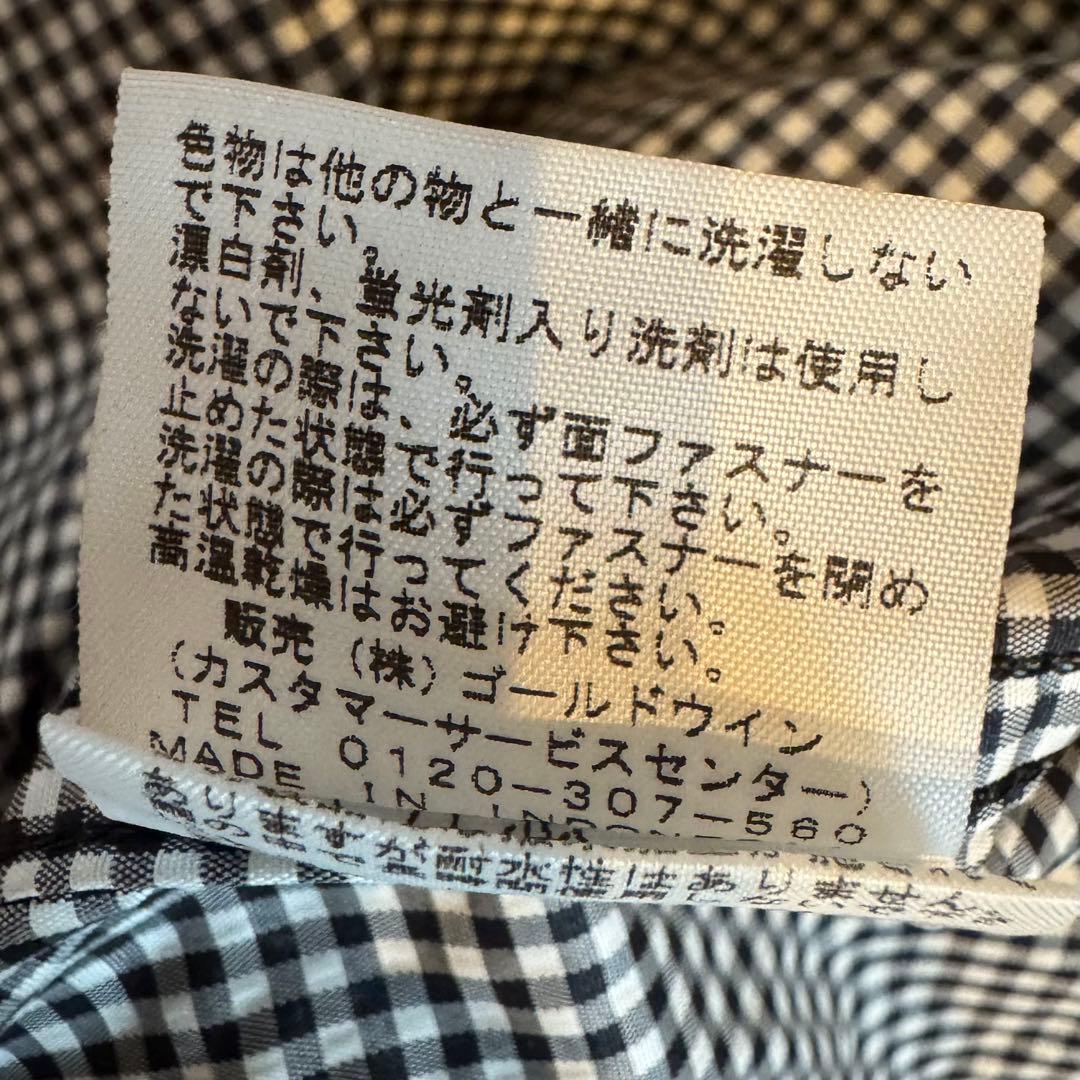 色物は他の物と一緒に洗濯しない
で下さい。
漂白剤、蛍光剤入り洗剤は使用し
ないで下さい。
洗濯の際は、必ず面ファスナーを
止めた状態で行って下さい。
洗濯の際は必ずファスナーを閉め
た状態で行ってください。
高温乾燥はお避け下さい。
販売 (株)ゴールドウイン
(カスタマーサービスセンター)
TEL 0120-307-560
MADE IN
ありますが耐水性はありません。